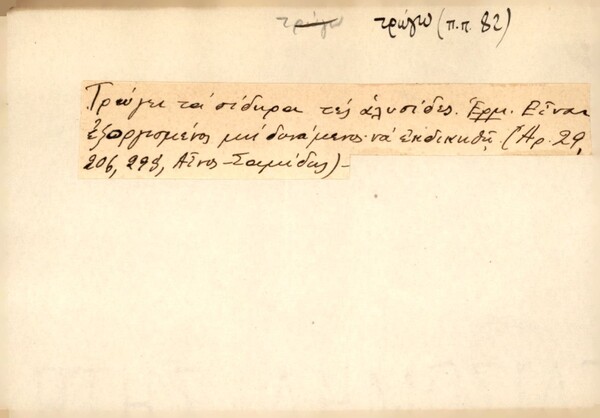 τρώγω τρώγω (π.π. 82)
Τρώγει τά σίδερα τές ἁλυσίδες. Ἑρμ. Εἶναι
ἐξωργισμένος μή δυνάμενος νά ἐκδικηθῇ. (Ἀρ. 29,
206, 298, Αἶνος - Σαμίδας) -